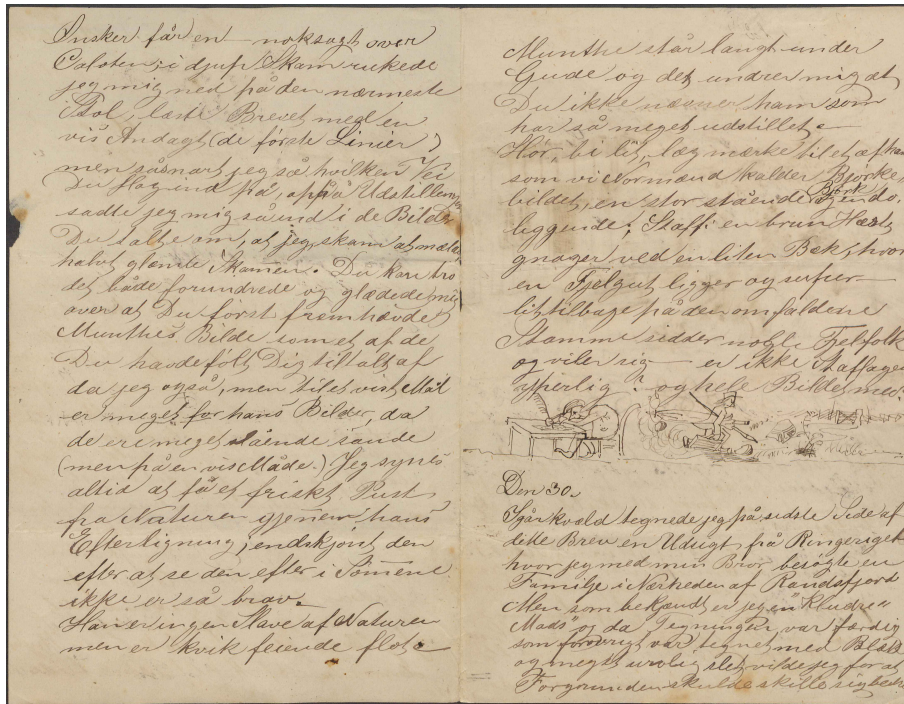 Ønsker får en noksagt over
Caloten; i djup Skam rukede
jeg mig ned på den nærmeste
Stol, læste Brevet med en
vis Andagt (de første Linier)
men såsnart jeg så hvilken Vei
Du slog ind på, på Udstillen
satte jeg mig så ind i de Bilder
Du talte om, at jeg, skam at mæle
halvt glemte Skamen. Du kan tro
det både forundrede og glædede mig
over at Du først fremhævdet
Munthes Bilde som et af de
Du havde følt Dig tiltalt af
da jeg også, men til et vist Mål
er meget for hans Bilder, da
de ere meget slående sande
(men på en vis Måde.) Jeg synes
altid at få et friskt Pust
fra Naturen gjennem hans
Efterligning, endskjønt den
efter at se den efter i Sømene
ikke er så brav.
Han er ingen Slave af Naturen
men er kvik feiende flot
Munthe står langt under
Gude og det undrer mig at
Du ikke nævner ham som
har så meget udstillet
Hør, bi lit, læg mærke til et af ham
som vi Normænd kalder Bjørke
bildet, en stor stående Bjørk og en do.
liggende; Staff: en brun Hest
gnager ved en liten Bæk, hvor
en Fjelgut ligger og
lit tilbage på den omfaldene
Stamme sidder nogle Fjelfolk
og viler sig — er ikke Staffagen
ypperlig? og hele Bildet med?
Den 30.
Igår kvæld tegnede jeg på sidste Side af
dette Brev en Udsigt fra Ringeriget
hvor jeg med min Bror besøgte en
Familje i Nærheden af Randsfjord
Men som bekjendt er jeg en "Kludre"
Mads" og da Tegningen var færdig
som forøvrigt var tegnet med Blæk
og meget urolig slet vilde jeg for at
Forgrunden skulde skille sig bedre